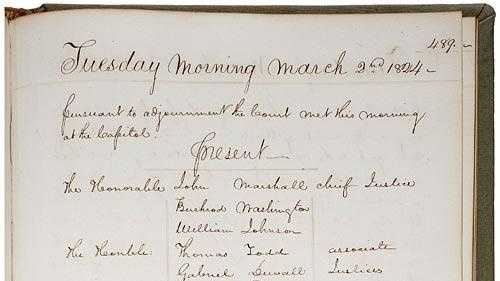 489.
Tuesday Morning March 2nd 1824
Pursuant to adjournment the Court met this morning
at the Capitol.
Present
The Honorable John Marshall chief Justice
Bushrod Washington
William Johnson
The Honble. Thomas Todd associate
Gabriel Duvall Justices